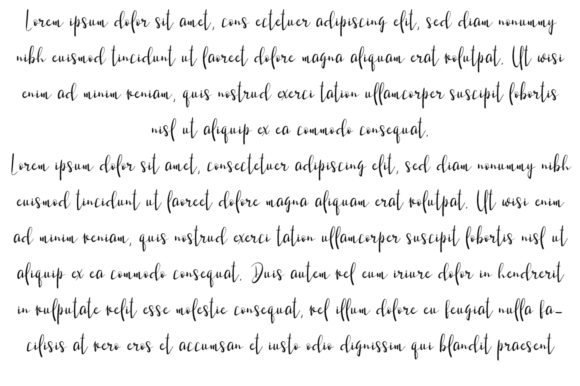 Lorem ipsum dolor sit amet, cons ectetuer adipiscing elit, sed diam nonummy
nibh euismod tincidunt ut laoreet dolore magna aliquam erat volutpat. Ut wisi
enim ad minim veniam, quis nostrud exerci tation ullamcorper suscipit lobortis
nisl ut aliquip ex ea commodo consequat.
Lorem ipsum dolor sit amet, consectetuer adipiscing elit, sed diam nonummy nibh
euismod tincidunt ut laoreet dolore magna aliquam erat volutpat. Ut wisi enim
ad minim veniam, quis nostrud exerci tation ullamcorper suscipit lobortis nisl ut
aliquip ex ea commodo consequat. Duis autem vel eum iriure dolor in hendrerit
in vulputate velit esse molestie consequat, vel illum dolore eu feugiat nulla fa-
cilisis at vero eros et accumsan et iusto odio dignissim qui blandit praesent